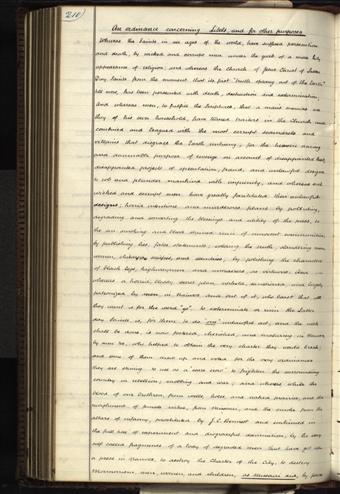 210
An ordinance concerning Libels, and for other purposes
Whereas the Saints in all ages of the world, have suffered persecution
and death, by wicked and corrupt men under the garb of a more holy
appearance of religion; and whereas the Church of Jesus Christ of Latter
Day Saints from the moment that its first "truth sprang out of the Earth"
till now, has been persecuted with death, destruction and extermination,
And whereas men, to fulfil the Scriptures, that a man's enemies are
they of his own household, have turned traitors in the Church and
combined and leagued with the most corrupt scoundrels and
villains that disgrace the Earth unhung; for the heaven daring
and damnable purpose of revenge on account of disappointed lust,
disappointed projects of speculation, fraud, and unlawful designs
to rob and plunder mankind with impunity; and whereas such
wicked and corrupt men have greatly facilitated their unlawful
designs, horrid intentions and murderous plans by polluting,
degrading and converting the blessings and utility of the press, to
the sin smoking and blood stained ruin of innocent communities
by publishing lies, false statements, coloring the truth, slandering men,
women, children, societies, and countries; by polishing the characters
of black legs, highwaymen, and murderers, as virtuous. And
whereas a horrid, bloody, secret plan, upheld, sanctioned, and largely
patronized by men in Nauvoo and out of it, who boast that all
they want is for the word "go" to exterminate or ruin the Latter
day Saints is for them to do any unlawful act, and the work
shall be done, is now fostered, cherished, and maturing in Nauvoo
by men too, who helped to obtain the very charter they would break;
and some of them drew up and voted for the very ordinances
they are striving to use as a "scare crow" to frighten the surrounding
country in rebellion; mobbing and war; and whereas while the
blood of our brethren, from wells, holes, and naked prairies, and the
ravishment of female virtue, from Missouri, and the smoke from the
altars of infamy, prostituted by J. C. Bennett and continued in
the full tide of experiment and disgraceful damnation, by the very
self called fragments of a body of degraded men that have got up
a press in Nauvoo, to destroy the Charter of the City, to destroy
Mormonism, men, women, and children, as Missouri did, by force